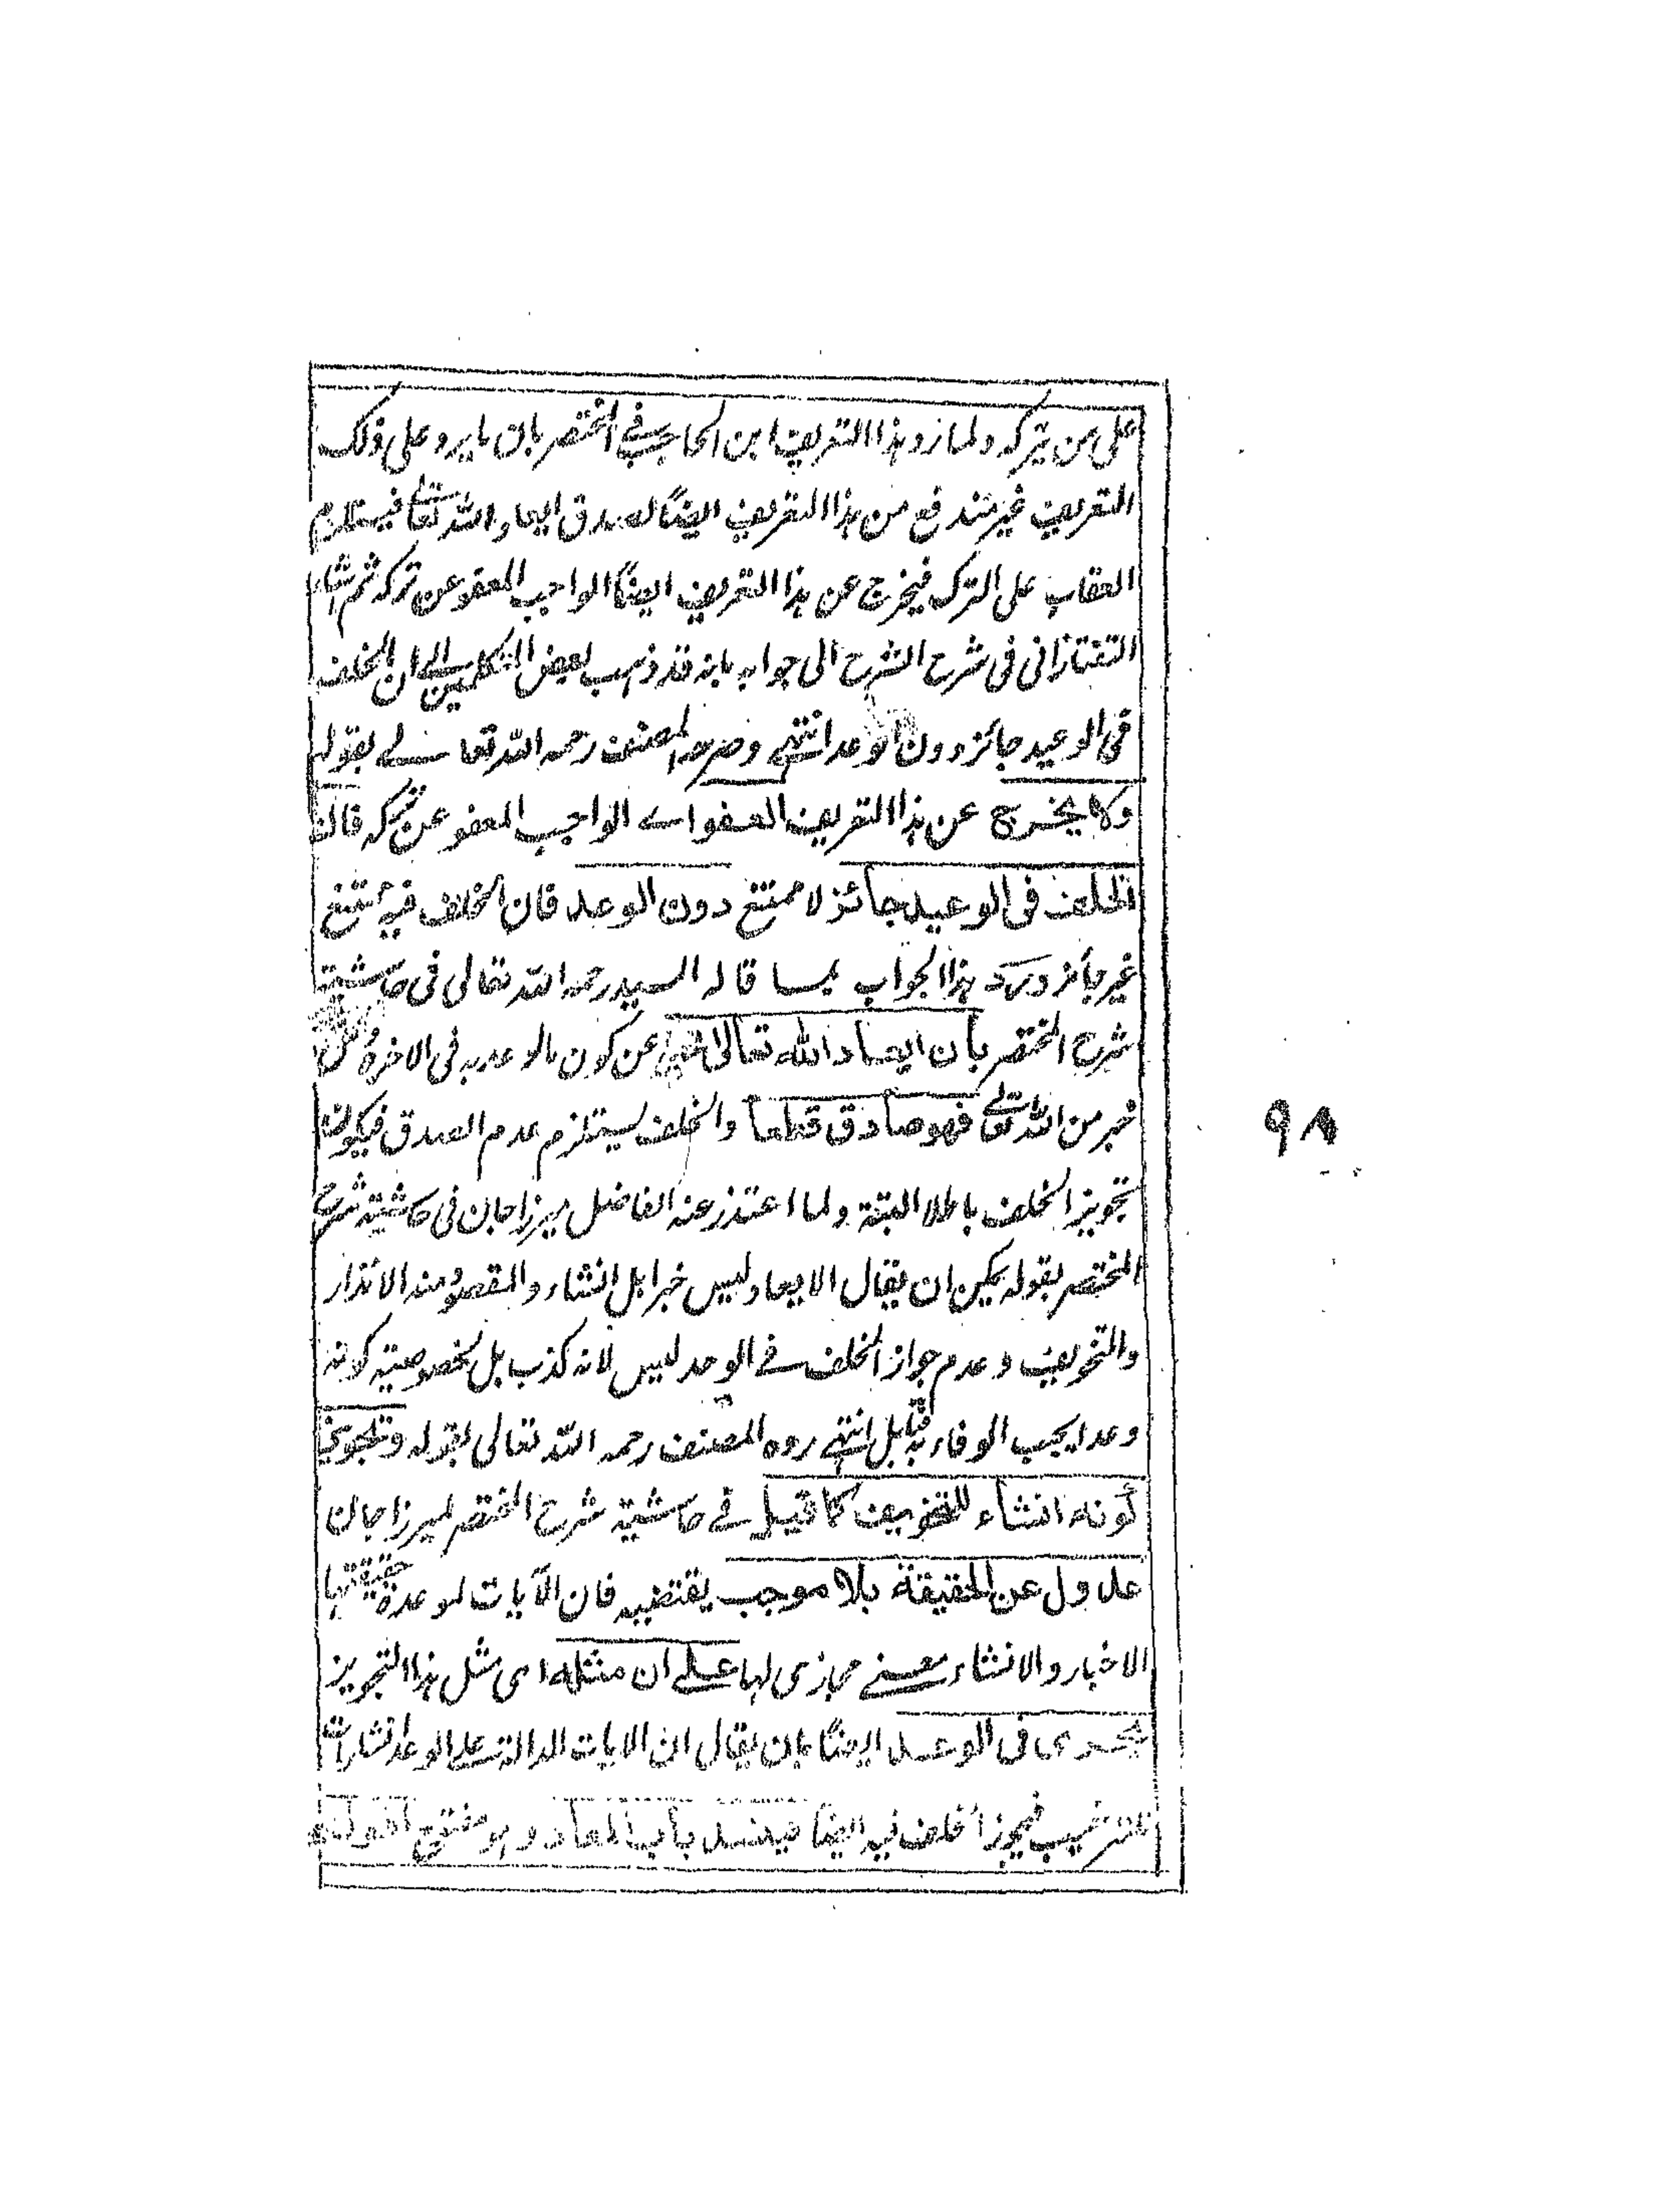 على من تركه ولما زد هذا التعريف ابن الحاجب في المختصر بان ما يرد على ذلك
التعريف غير مندفع من هذا التعريف ايضًا لصدق ايعاد الله تعالى فيستلزم
العقاب على الترك فيخرج عن هذا التعريف ايضًا الواجب المعفو عن تركه ثم اشار
التفتازانى فى شرح الشرح الى جوابه بانه قد ذهب بعض المتكلمين الى ان الخلف
فى الوعيد جائز دون الوعد انتهى وصرحه المصنف رحمه الله تعالى بقوله
ولا يخرج عن هذا التعريف العفو اے الواجب المعفو عن تركه فان
الخلف فى الوعيد جائز لا ممتنع دون الوعد فان الخلف فيه ممتنع
غير جائز ورد هذا الجواب بما قاله السيد رحمه الله تعالى فى حاشية
شرح المختصر بان ايعاد الله تعالى عن كون ما لوعد به فى الاخرة
خبر من الله تعالى فهو صادق قطعا والخلف يستلزم عدم الصدق فيكون
تجويز الخلف باطلا البتة ولما اعتذر عنه الفاضل ميرزا جان فى حاشية شرح
المختصر بقوله يمكن ان يقال الايعاد ليس خبرا بل انشاء والمقصود منه الانذار
والتخويف وعدم جواز الخلف فے الوعد ليس لانه كذب بل لخصوصية كونه
وعدا يجب الوفاء به انتهى رده المصنف رحمه الله تعالى بقوله وتجويز
كونه انشاء للتخويف كما قيل فے حاشية شرح المختصر لميرزا جان
عدول عن الحقيقة بلا موجب يقتضيه فان الآيات لموعدة حقيقتها
الاخبار والانشاء معنے مجازى لها علے ان مثله اى مثل هذا التجويز
يجرى فى الوعد ايضًا بان يقال ان الايات الدالة على الوعد انشاءات
للترغيب فيجوز الخلف فيه ايضًا فينسد باب المعاد وهو
٩٨